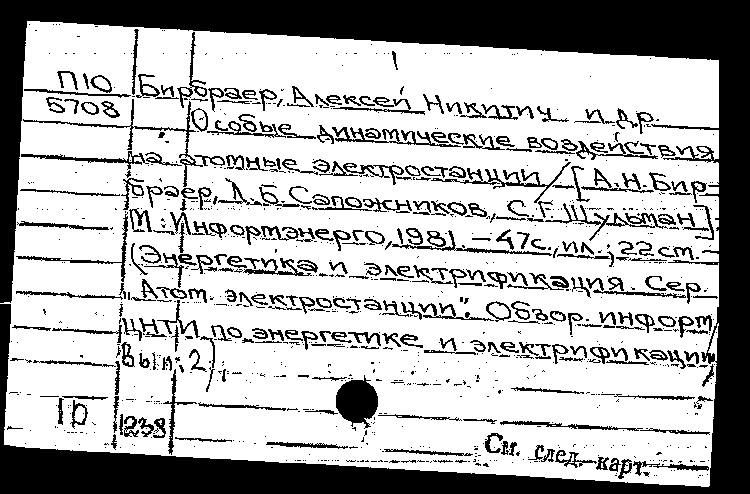 П10 Бирбраер, Алексей Никитич и др.
5708 Особые динамические воздействия
на атомные электростанции / [А.Н.Бир-
браер, Л.Б.Сапожников, С.Г.Шульман].
М.: Информэнерго, 1981. – 47с., ил.; 22см. –
(Энергетика и электрификация. Сер.
„Атом. электростанции". Обзор. информ /
ЦНТИ по энергетике и электрификации
Вып. 2).
1238
См. след. карт.